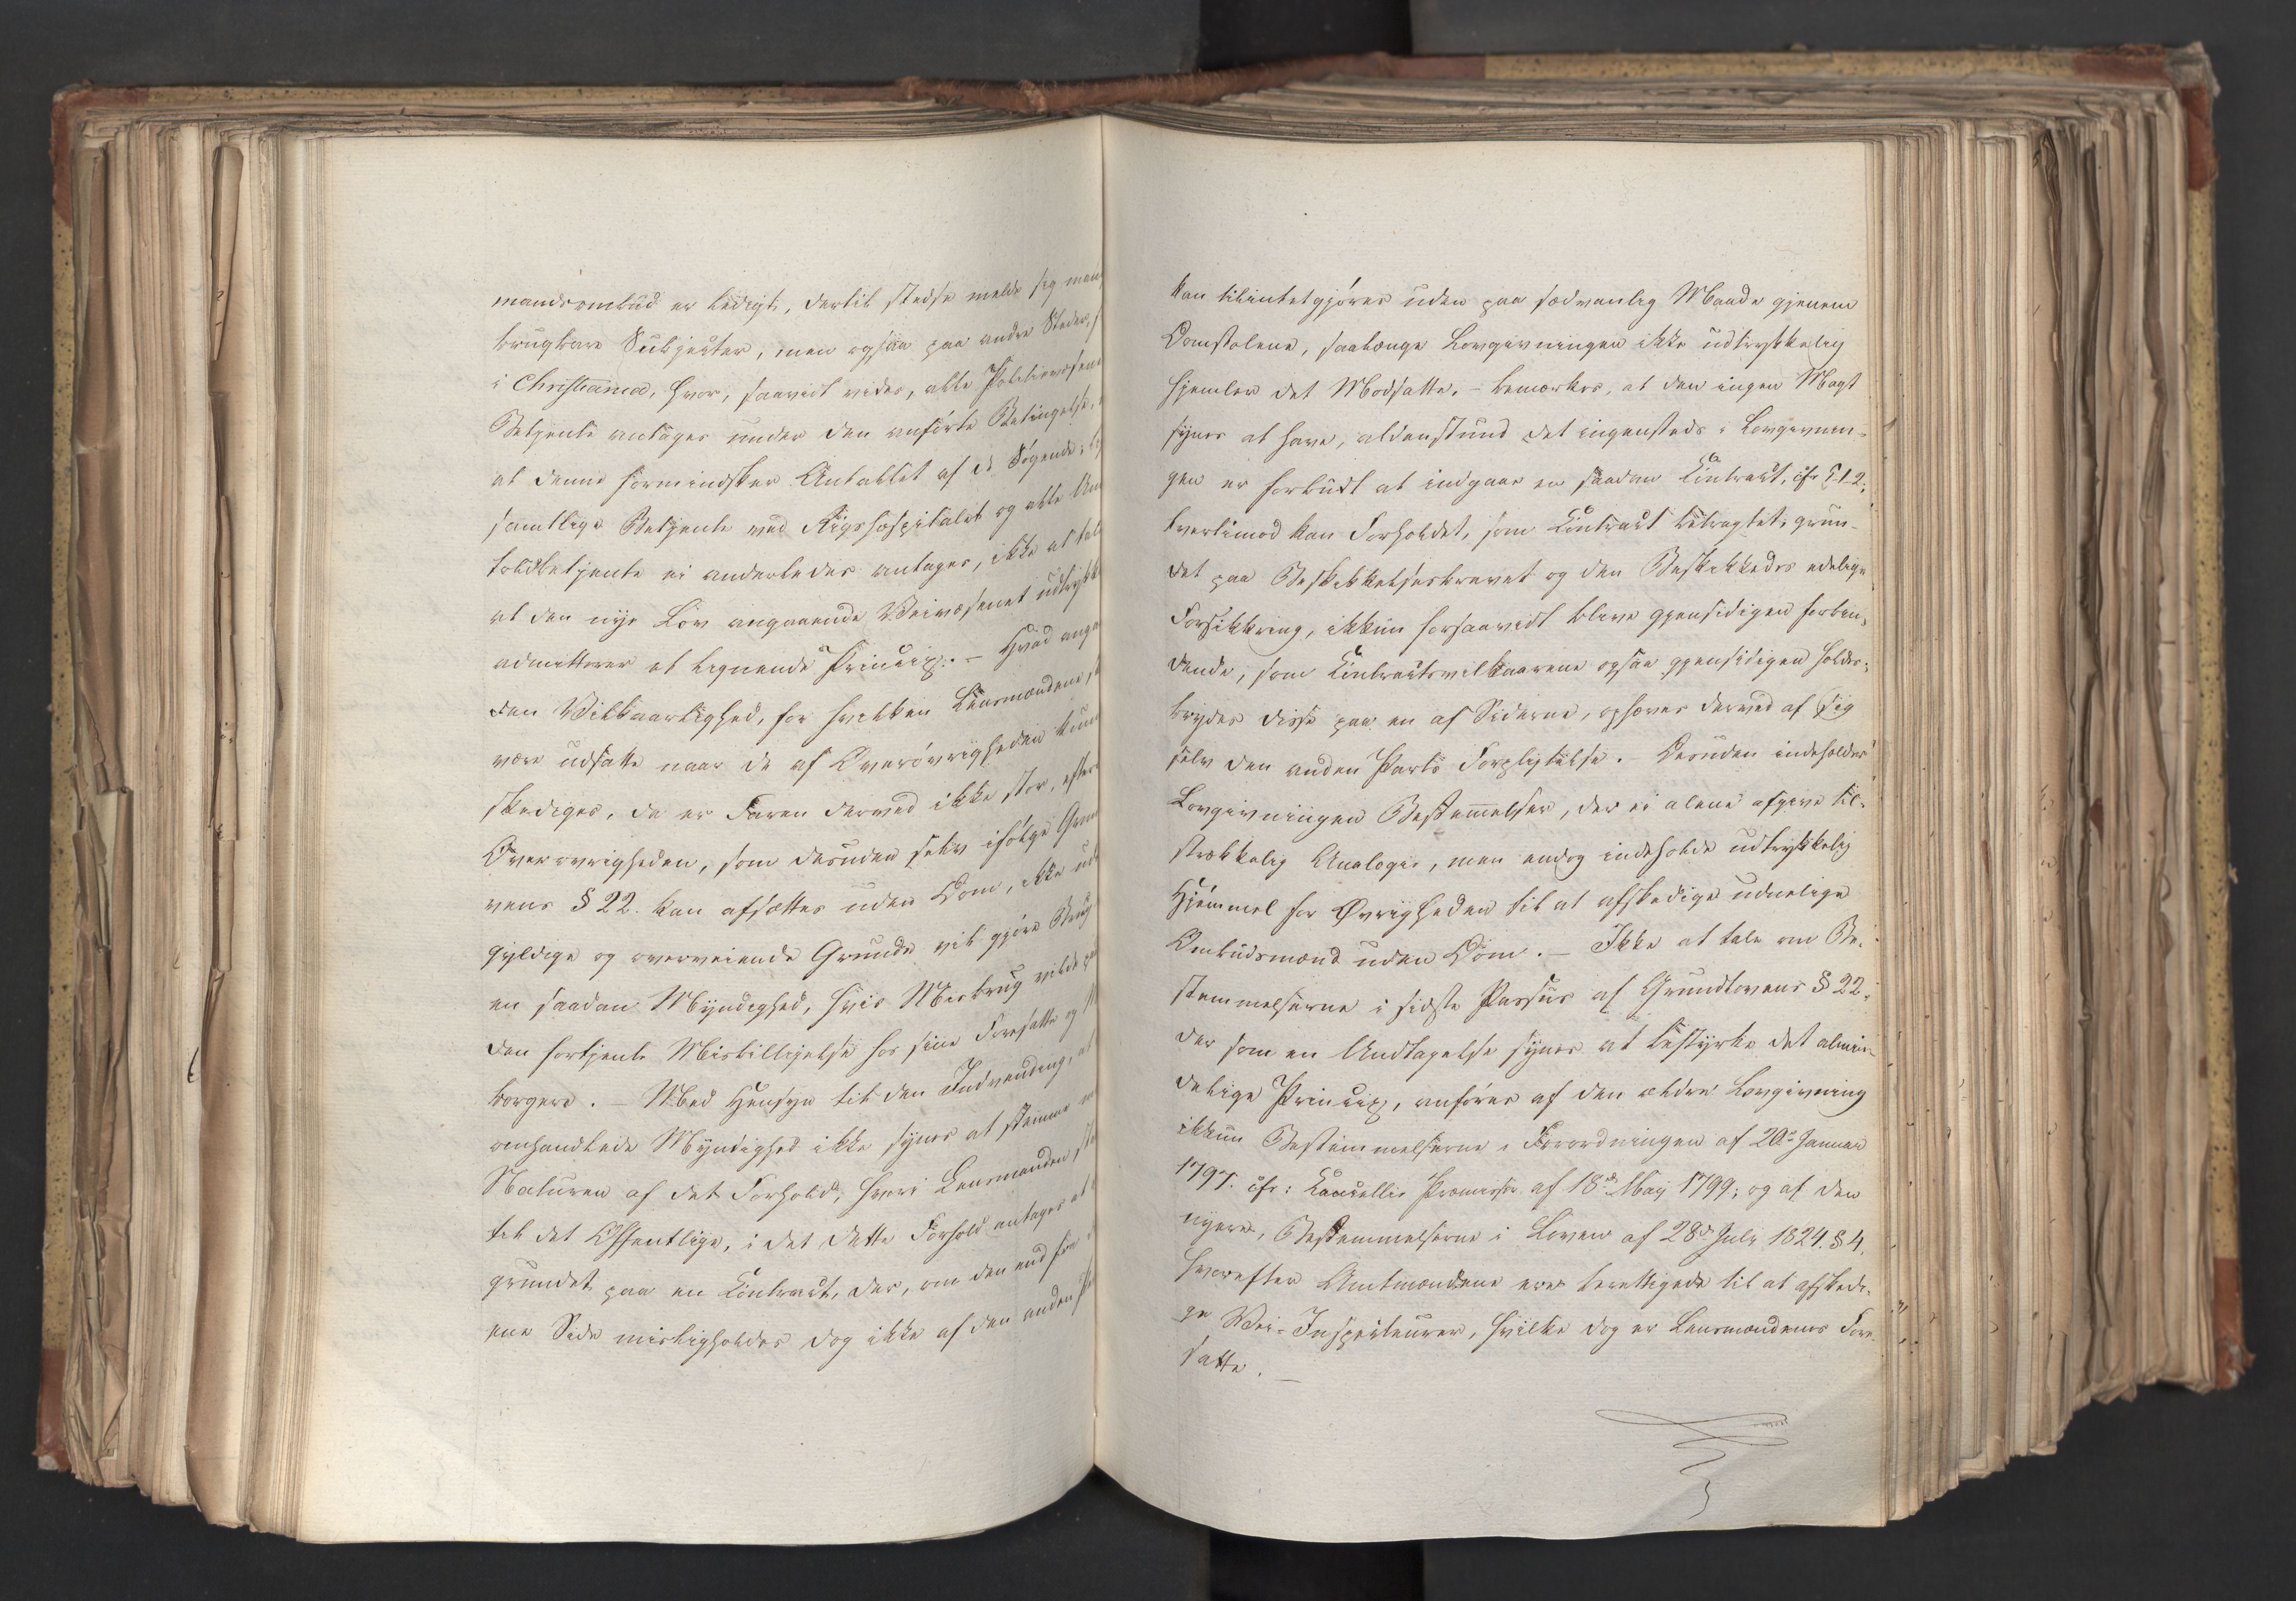 mandsombud er ledigt, dertil stedse melde sig man
brugbare Subjecter, men ogsaa paa andre Steder, s
i Christiania, hvor, saavidt vides, alle Politievæsene
Betjente antages under den anførte Betingelse,
at denne formindsker Antallet af de Søgende;
samtlige Betjente ved Rigshospitalet og alle Un
toldbetjente ei anderledes antages, ikke at tale
at den nye Lov angaaende Veivæsenet udtrykk
admitterer et lignende Princip. – Hvad anga
den Vilkaarlighed, for hvilken Lensmændene s
være udsatte naar de af Overøvrigheden kun
skediges, da er Faren derved ikke stor, efter
Overøvrigheden, som desuden selv ifølge Grun
vens § 22. kan afsættes uden Dom, ikke ude
gyldige og overveiende Grunde vil gjøre Brug
en saadan Myndighed, hvis Misbrug vilde
den fortjente Misbilligelse hos sine Foresatte og M
borgere. – Med Hensyn til den Indvending, at
omhandlede Myndighed ikke synes at stemme m
Naturen af det Forhold, hvori Lensmanden sta
til det Offentlige, i det dette Forhold antages at
grundet paa en Contract, der, om den end fra
ene Side misligholdes dog ikke af den anden Pa
kan tilintetgjøres uden paa sædvanlig Maade gjenem
Domstolene, saalænge Lovgivningen ikke udtrykkelig
hjemler det Modsatte, – bemærkes, at den ingen Magt
synes at have, aldenstund det ingensteds i Lovgivnin-
gen er forbudt at indgaae en saadan Contract, cfr 5.1.2;
tvertimod kan Forholdet, som Contract betragtet, grun-
det paa Beskikkelsesbrevet og den Beskikkedes edelige
Forsikkring, ikkun forsaavidt blive gjensidigen forbin-
dende, som Contractsvilkaarene ogsaa gjensidigen holdes;
brydes disse paa en af Siderne, ophæves derved af sig
selv den anden Parts Forpligtelse. – Desuden indeholder
Lovgivningen Bestemmelser, der ei alene afgive til-
strækkelig Analogie, men endog indeholde udtrykkelig
Hjemmel for Øvrigheden til at afskedige uduelige
Ombudsmænd uden Dom. – Ikke at tale om Be-
stemmelserne i sidste Passus af Grundlovens § 22.
der som en Undtagelse synes at bestyrke det almin-
delige Princip, anføres af den ældre Lovgivning
ikkun Bestemmelserne i Forordningen af 20de Januar
1797. cfr: Cancellie Promemoria af 18de May 1799; og af den
nyere, Bestemmelserne i Loven af 28de July 1824. § 4,
hvorefter Amtmændene ere berettigede til at afskedi-
ge Vei-Inspecteurer, hvilke dog er Lensmændenes Fore-
satte. –